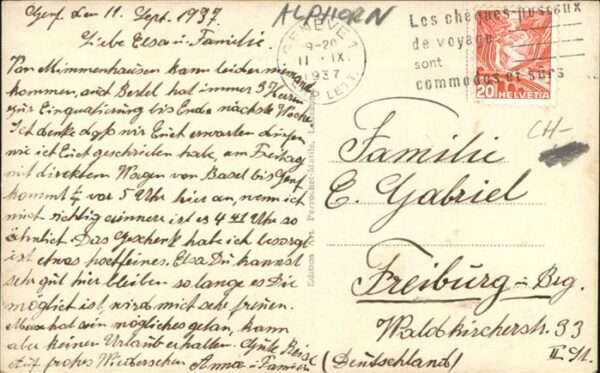 Genf, den 11. Sept. 1937.
Liebe Elsa u. Familie.
Von Mimmenhausen kann leider niemand
kommen, auch Bertel hat immer 3 Herren
zur Einquatierung bis Ende nächste Woche.
Ich denke daß wir Euch erwarten dürfen
wie ich Euch geschrieben habe, am Freitag
mit direktem Wagen von Basel bis Genf
kommt ¼ vor 5 Uhr hier an, wenn ich
mich richtig erinnere ist es 4 41 Uhr so
ähnlich. Das Geschenk habe ich besorgt
ist etwas hochfeines. Elsa Du kannst
sehr gut hier bleiben so lange es Dir
möglich ist, wird mich sehr freuen.
hat sein mögliches getan, kann
aber keinen Urlaub erhalten. Gute Reise
Auf frohes Wiedersehen Anna - Familie
ALPHORN
GENÈVE 1
9-20
11 · IX.
1937
EXP. LETT.
Les chèques postaux
de voyage
sont
commodes et sûrs
20 HELVETIA
CH-
Familie
E. Gabriel
Freiburg = Brg.
Waldkircherstr. 33
II. St.
(Deutschland)
Edition Art. Perrochet-Matile, Lausanne